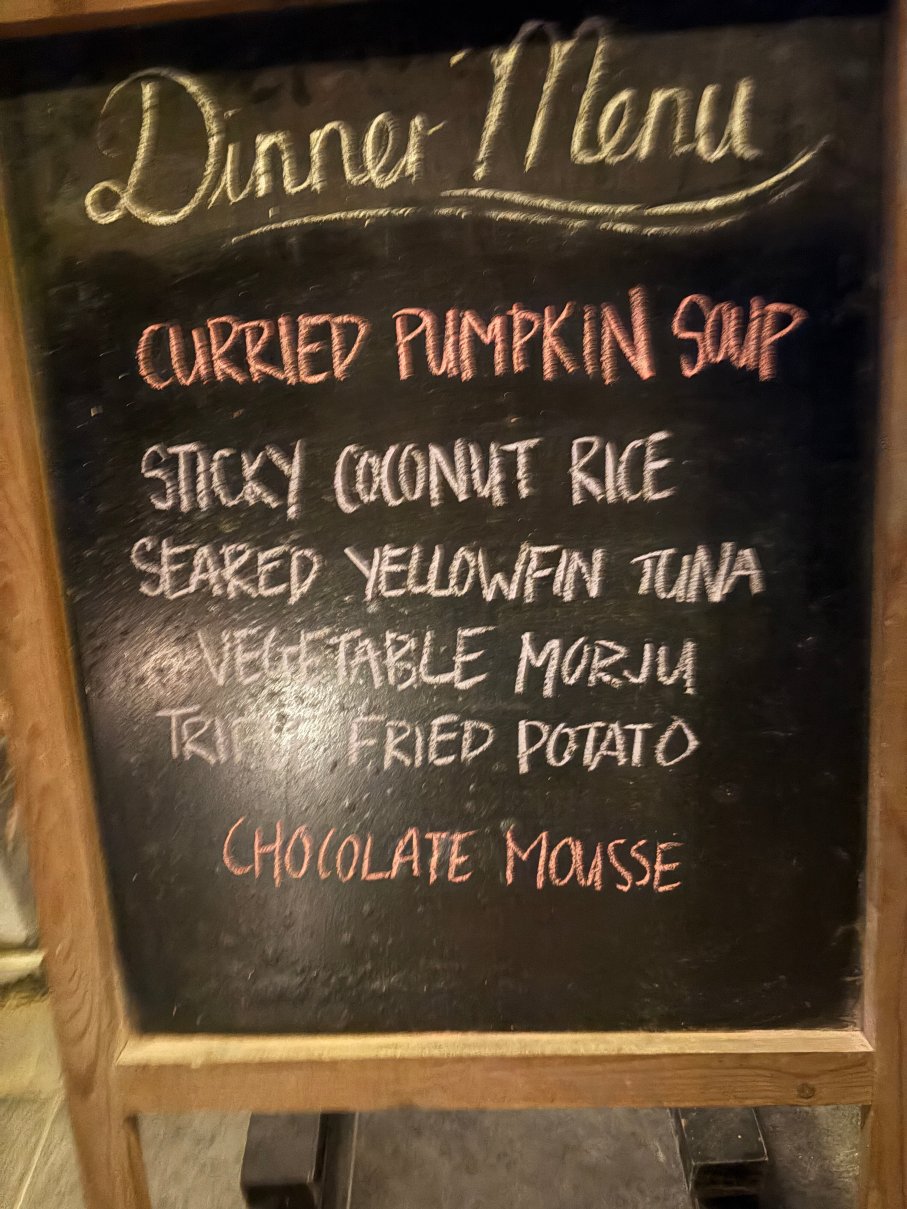 Dinner Menu
CURRIED PUMPKIN SOUP
STICKY COCONUT RICE
SEARED YELLOWFIN TUNA
VEGETABLE MORJU
FRIED POTATO
CHOCOLATE MOUSSE